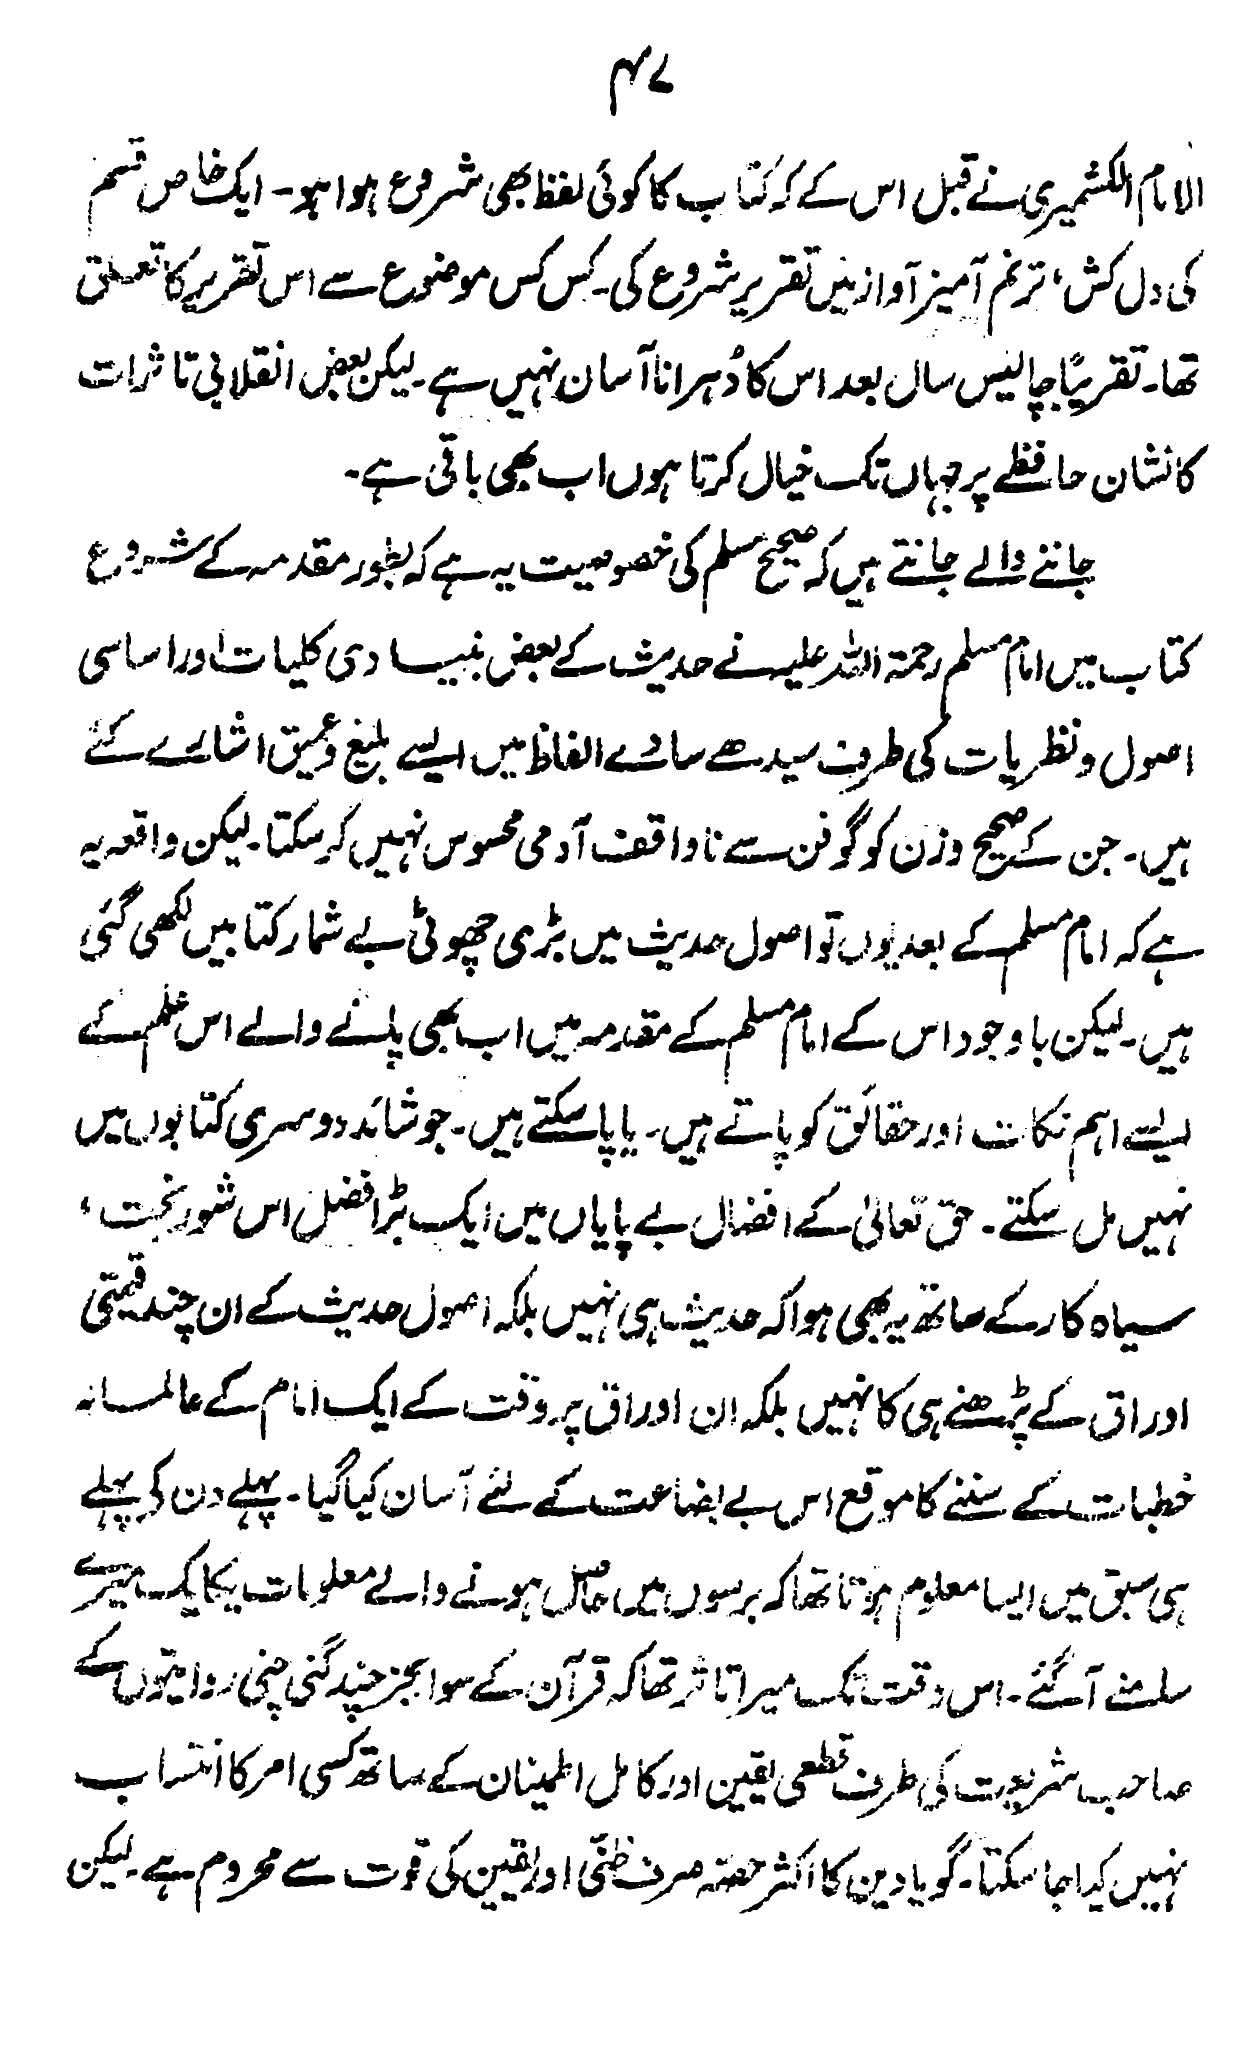 ۴۷
الامام الکشمیری نے قبل اس کے کہ کتاب کا کوئی لفظ بھی شروع ہوا ہو۔ ایک خاص قسم
کی دل کش، ترنم آمیز آواز میں تقریر شروع کی۔ کس کس موضوع سے اس تقریر کا تعلق
تھا۔ تقریبًا چالیس سال بعد اس کا دُہرانا آسان نہیں ہے۔ لیکن بعض انقلابی تاثرات
کا نشان حافظے پر جہاں تک خیال کرتا ہوں اب بھی باقی ہے۔
جاننے والے جانتے ہیں کہ صحیح مسلم کی خصوصیت یہ ہے کہ بطور مقدمہ کے شروع
کتاب میں امام مسلم رحمۃ اللہ علیہ نے حدیث کے بعض بنیادی کلیات اور اساسی
اصول و نظریات کی طرف سیدھے سادے الفاظ میں ایسے بلیغ و عمیق اشارے کئے
ہیں۔ جن کے صحیح وزن کو گو فن سے ناواقف آدمی محسوس نہیں کر سکتا۔ لیکن واقعہ یہ
ہے کہ امام مسلم کے بعد یوں تو اصول حدیث میں بڑی چھوٹی بے شمار کتابیں لکھی گئی
ہیں۔ لیکن باوجود اس کے امام مسلم کے مقدمہ میں اب بھی پانے والے اس علم کے
ایسے اہم نکات اور حقائق کو پاتے ہیں۔ یا پا سکتے ہیں۔ جو شائد دوسری کتابوں میں
نہیں مل سکتے۔ حق تعالیٰ کے افضال بے پایاں میں ایک بڑا فضل اس شور بخت،
سیاہ کار کے ساتھ یہ بھی ہوا کہ حدیث ہی نہیں بلکہ اصول حدیث کے ان چند قیمتی
اوراق کے پڑھنے ہی کا نہیں بلکہ ان اوراق پر وقت کے ایک امام کے عالمانہ
خطبات کے سننے کا موقع اس بے بضاعت کے لئے آسان کیا گیا۔ پہلے دن کے پہلے
ہی سبق میں ایسا معلوم ہوتا تھا کہ برسوں میں حاصل ہونے والے معلومات یکایک میرے
سامنے آ گئے۔ اس وقت تک میرا تاثر تھا کہ قرآن کے سوا بجز چند گنی چنی روایتوں کے
صاحب شریعت کی طرف قطعی یقین اور کامل اطمینان کے ساتھ کسی امر کا انتساب
نہیں کیا جا سکتا۔ گویا دین کا اکثر حصّہ صرف ظنّی اور یقین کی قوت سے محروم ہے۔ لیکن